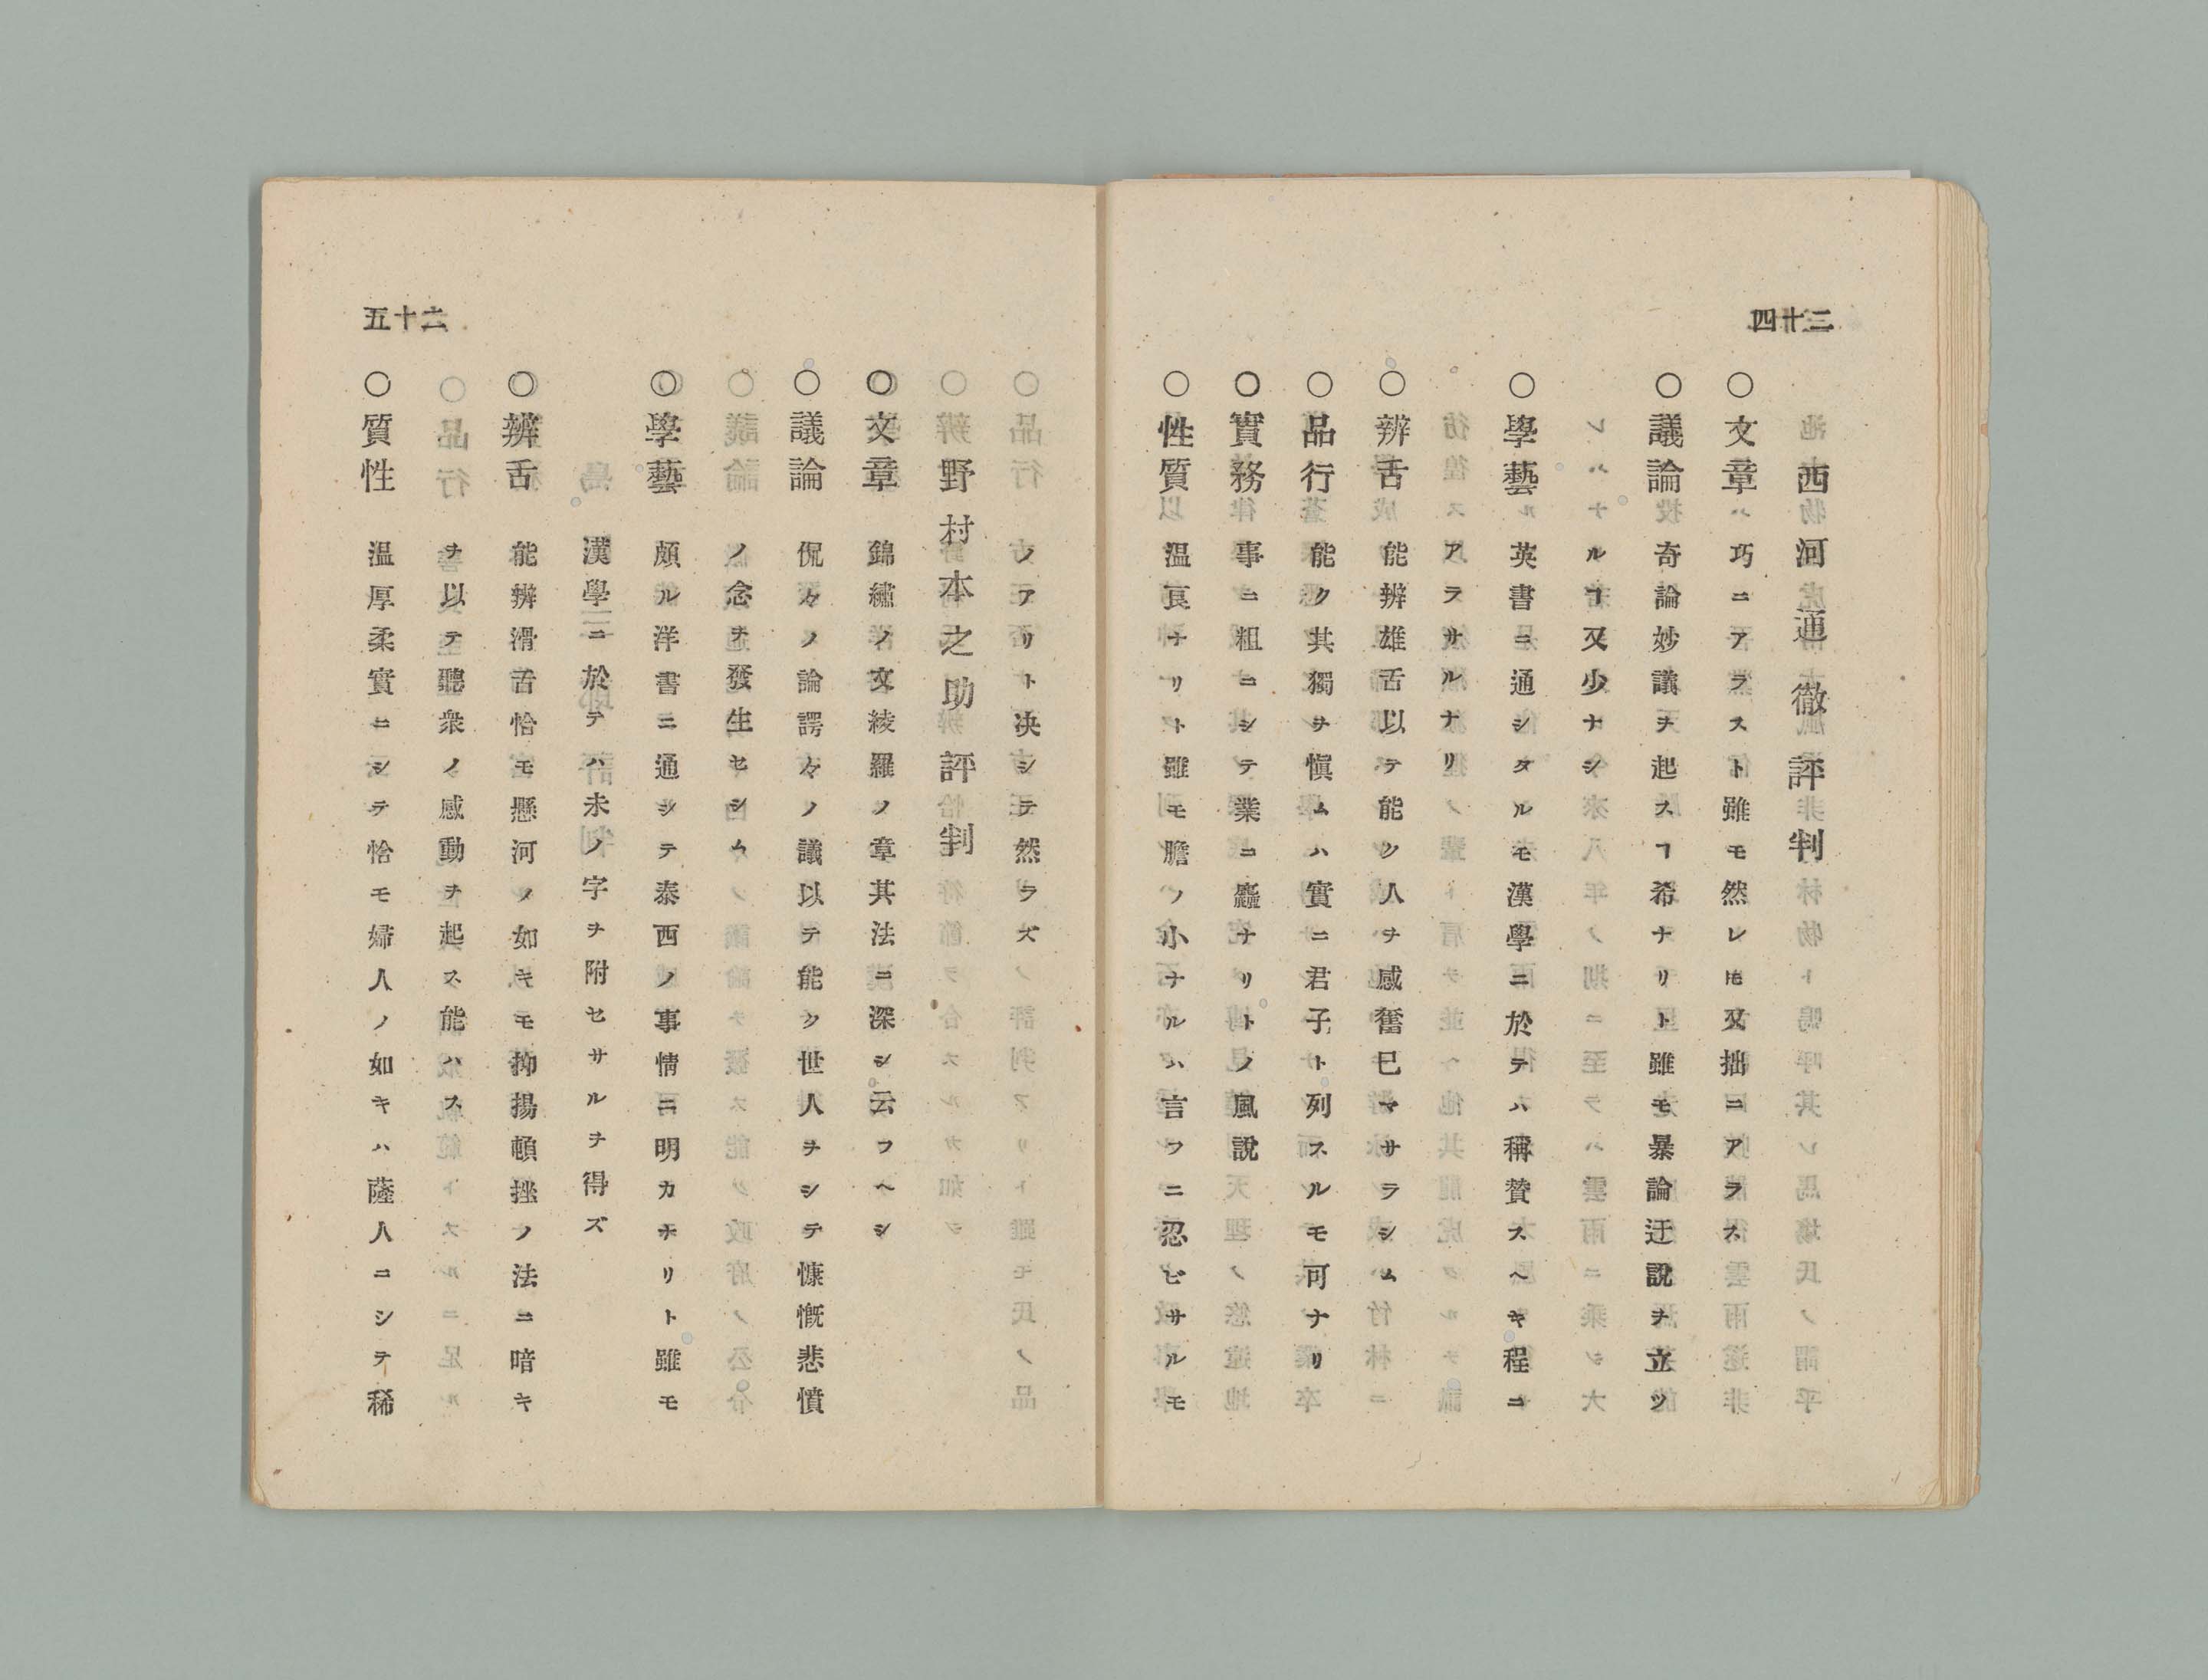 二十四
西河通徹評判
○文章　巧ニアラスト雖モ然レ𪜈又拙ニアラス
○議論　奇論妙議ヲ起スヿ希ナリト雖モ暴論迂説ヲ立ツ
ルヿ又少ナシ
○學藝　英書ニ通シタルモ漢學ニ於テハ稱賛スヘキ程ニ
アラサルナリ
○辨舌　能辨雄舌以テ能ク人ヲ感奮已マサラシム
○品行　能ク其獨ヲ愼ムハ實ニ君子ト列スルモ可ナリ
○實務　事ニ粗ニシテ業ニ麤ナリトノ風説
○性質　温良ナリト雖モ膽ノ小ナルハ言フニ忍ビサルモ
二十五
ノアリト决シテ然ラズ
野村本之助評判
○文章　錦繡ノ文綾羅ノ章其法ニ深シ云フヘシ
○議論　侃々ノ論諤々ノ議以テ能ク世人ヲシテ慷慨悲憤
ノ念ヲ發生セシム
○學藝　頗ル洋書ニ通シテ泰西ノ事情ニ明カナリト雖モ
漢學ニ於テハ未ノ字ヲ附セサルヲ得ズ
○辨舌　能辨滑舌恰モ懸河ノ如キモ抑揚頓挫ノ法ニ暗キ
ヲ以テ聽衆ノ感動ヲ起ス能ハス
○質性　温厚柔實ニシテ恰モ婦人ノ如キハ薩人ニシテ稀